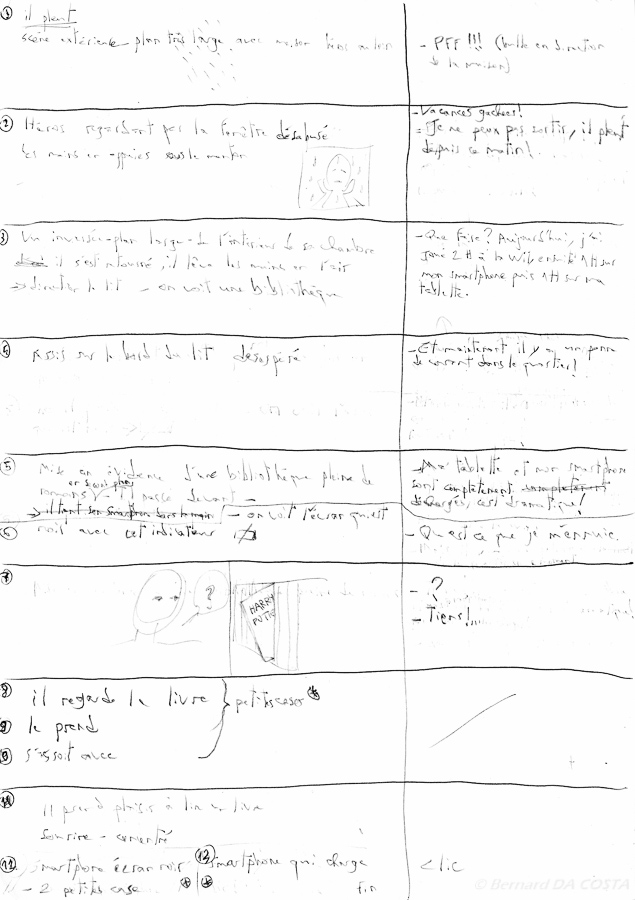 ① il pleut
scène extérieure plan très large avec maison bien au loin
- PFF !!! (bulle en direction
de la maison)
② Héros regardant par la fenêtre désabusé
les mains en appuies sous le menton
- Vacances gachées!
- Je ne peux pas sortir, il pleut
depuis ce matin!
③ Vu inversée plan large de l'intérieur de sa chambre
il s'est retourné, il lève les mains en l'air
→ direction le lit - on voit une bibliothèque
- Que faire? Aujourd'hui, j'ai
joué 2H à la Wii, ensuite 1H sur
mon smartphone puis 1H sur ma
tablette.
④ Assis sur le bord du lit désespéré
- Et maintenant il y a une panne
de courant dans le quartier!
⑤ Mise en évidence d'une bibliothèque pleine de
romans - Il passe devant -
→ il tient son smartphone dans la main - on voit l'écran qui est
- Ma tablette et mon smartphone
sont complètement
déchargés, c'est dramatique!
⑥ noir avec cet indicateur
- Qu'est ce que je m'ennuie.
⑦ ?
HARRY
POTTER
- ?
- Tiens!....
⑧ il regarde le livre
petites cases
⑨ le prend
s'assoit avec
il prend plaisir à lire un livre
sourire - concentré
⑪ smartphone écran noir
- 2 petites case
⑫ smartphone qui charge
fin
clic
© Bernard DA COSTA